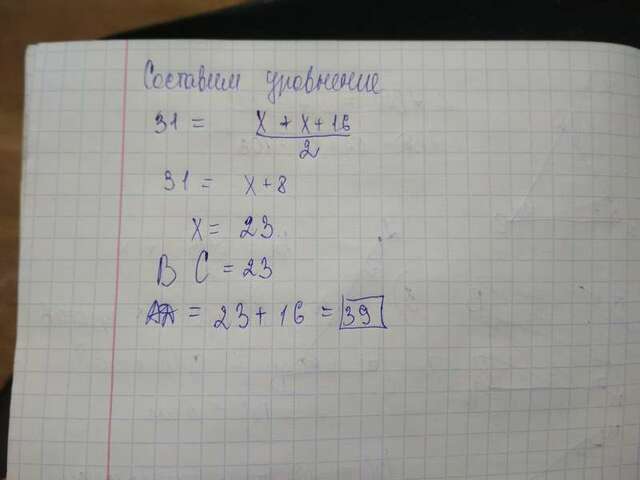 Составим уровнение
31 = x + x + 16 / 2
31 = x + 8
x = 23
B C = 23
= 23 + 16 = 39